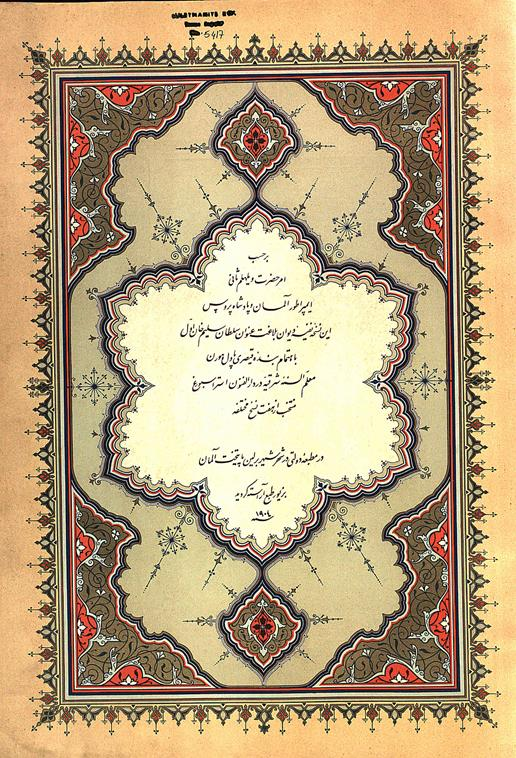 SÜLEYMANİYE KÜT.
5417
بر حسب
امر حضرت ویلهلم ثانی
ایمپراطور آلمان و پادشاه پروس
این نسخهٔ نفیسهٔ دیوان بلاغت عنوان سلطان سلیم خان اول
باهتمام بندهٔ قیصری پاول هورن
معلّم السنهٔ شرقیه در دار الفنون استراسبورغ
منتخب از هفت نسخ مختلفه
در مطبعهٔ دولتی در شهر شهیر برلین پایتخت آلمان
بزیور طبع آراسته گردید
۱۹۰٤